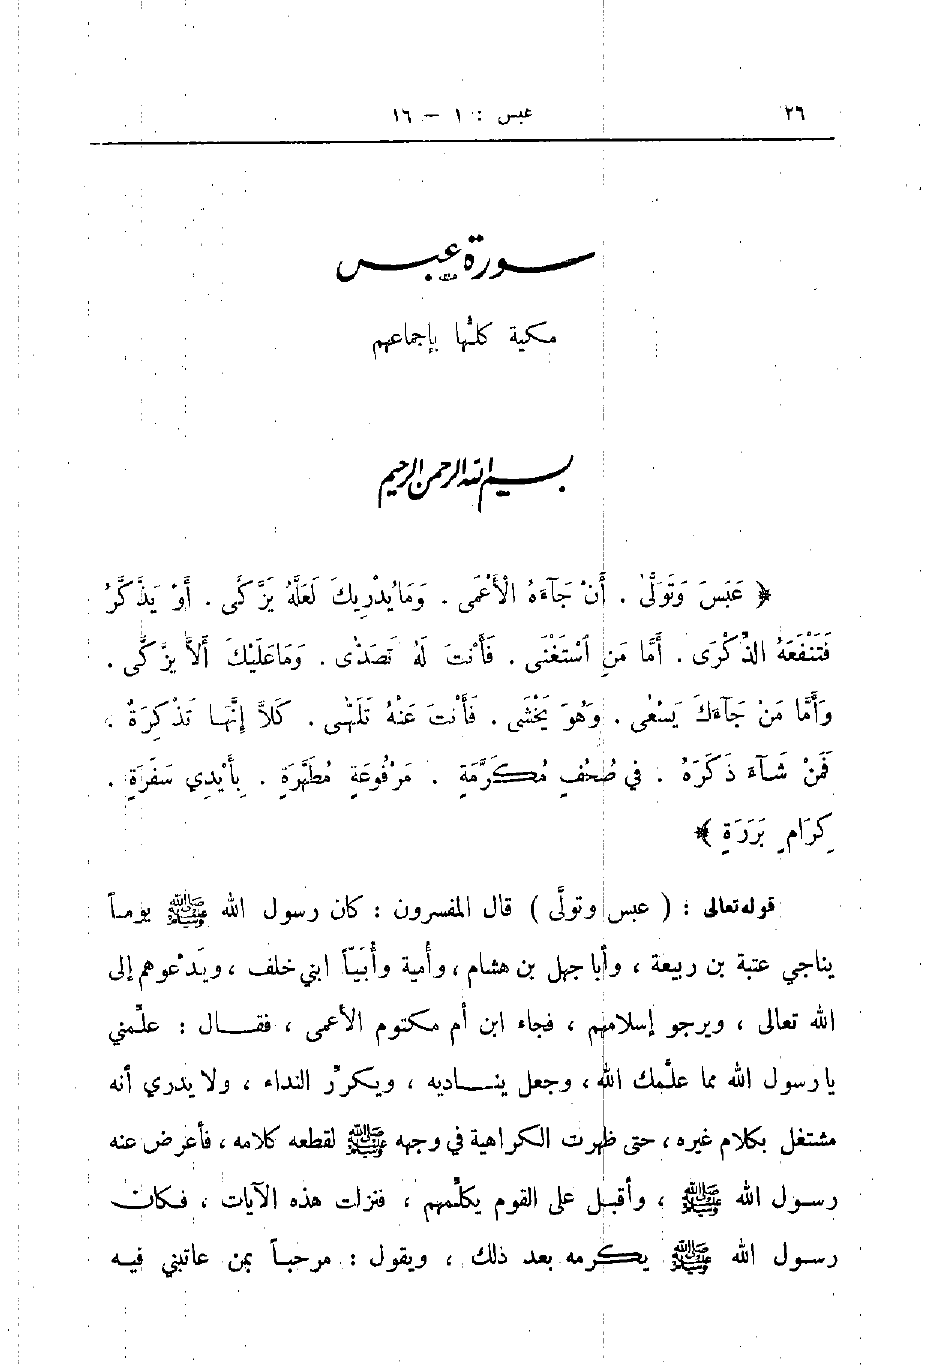 ٢٦ عبس : ١ – ١٦
سورة عبس
مكية كلُّها بإجماعهم
بسم الله الرحمن الرحيم
﴿ عَبَسَ وَتَوَلَّىٰ . أَنْ جَآءَهُ الْأَعْمَى . وَمَا يُدْرِيكَ لَعَلَّهُ يَزَّكَّى . أَوْ يَذَّكَّرُ
فَتَنْفَعَهُ الذِّكْرَى . أَمَّا مَنِ اسْتَغْنَى . فَأَنْتَ لَهُ تَصَدَّى . وَمَا عَلَيْكَ أَلاَّ يَزَّكَّى .
وَأَمَّا مَنْ جَآءَكَ يَسْعَى . وَهُوَ يَخْشَى . فَأَنْتَ عَنْهُ تَلَهَّى . كَلاَّ إِنَّهَا تَذْكِرَةٌ .
فَمَنْ شَآءَ ذَكَرَهُ . فِي صُحُفٍ مُكَرَّمَةٍ . مَرْفُوعَةٍ مُطَهَّرَةٍ . بِأَيْدِي سَفَرَةٍ .
كِرَامٍ بَرَرَةٍ ﴾
قوله تعالى : ( عبس وتولَّى ) قال المفسرون : كان رسول الله ﷺ يوماً
يناجي عتبة بن ربيعة ، وأبا جهل بن هشام ، وأمية وأُبَيّاً ابني خلف ، ويَدْعوهم إلى
الله تعالى ، ويرجو إسلامهم ، فجاء ابن أم مكتوم الأعمى ، فقال : علِّمني
يا رسول الله مما علَّمك الله ، وجعل يناديه ، ويكرِّر النداء ، ولا يدري أنه
مشتغل بكلام غيره ، حتى ظهرت الكراهية في وجهه ﷺ لقطعه كلامه ، فأعرض عنه
رسول الله ﷺ ، وأقبل على القوم يكلِّمهم ، فنزلت هذه الآيات ، فكان
رسول الله ﷺ يكرمه بعد ذلك ، ويقول : مرحباً بمن عاتبني فيه